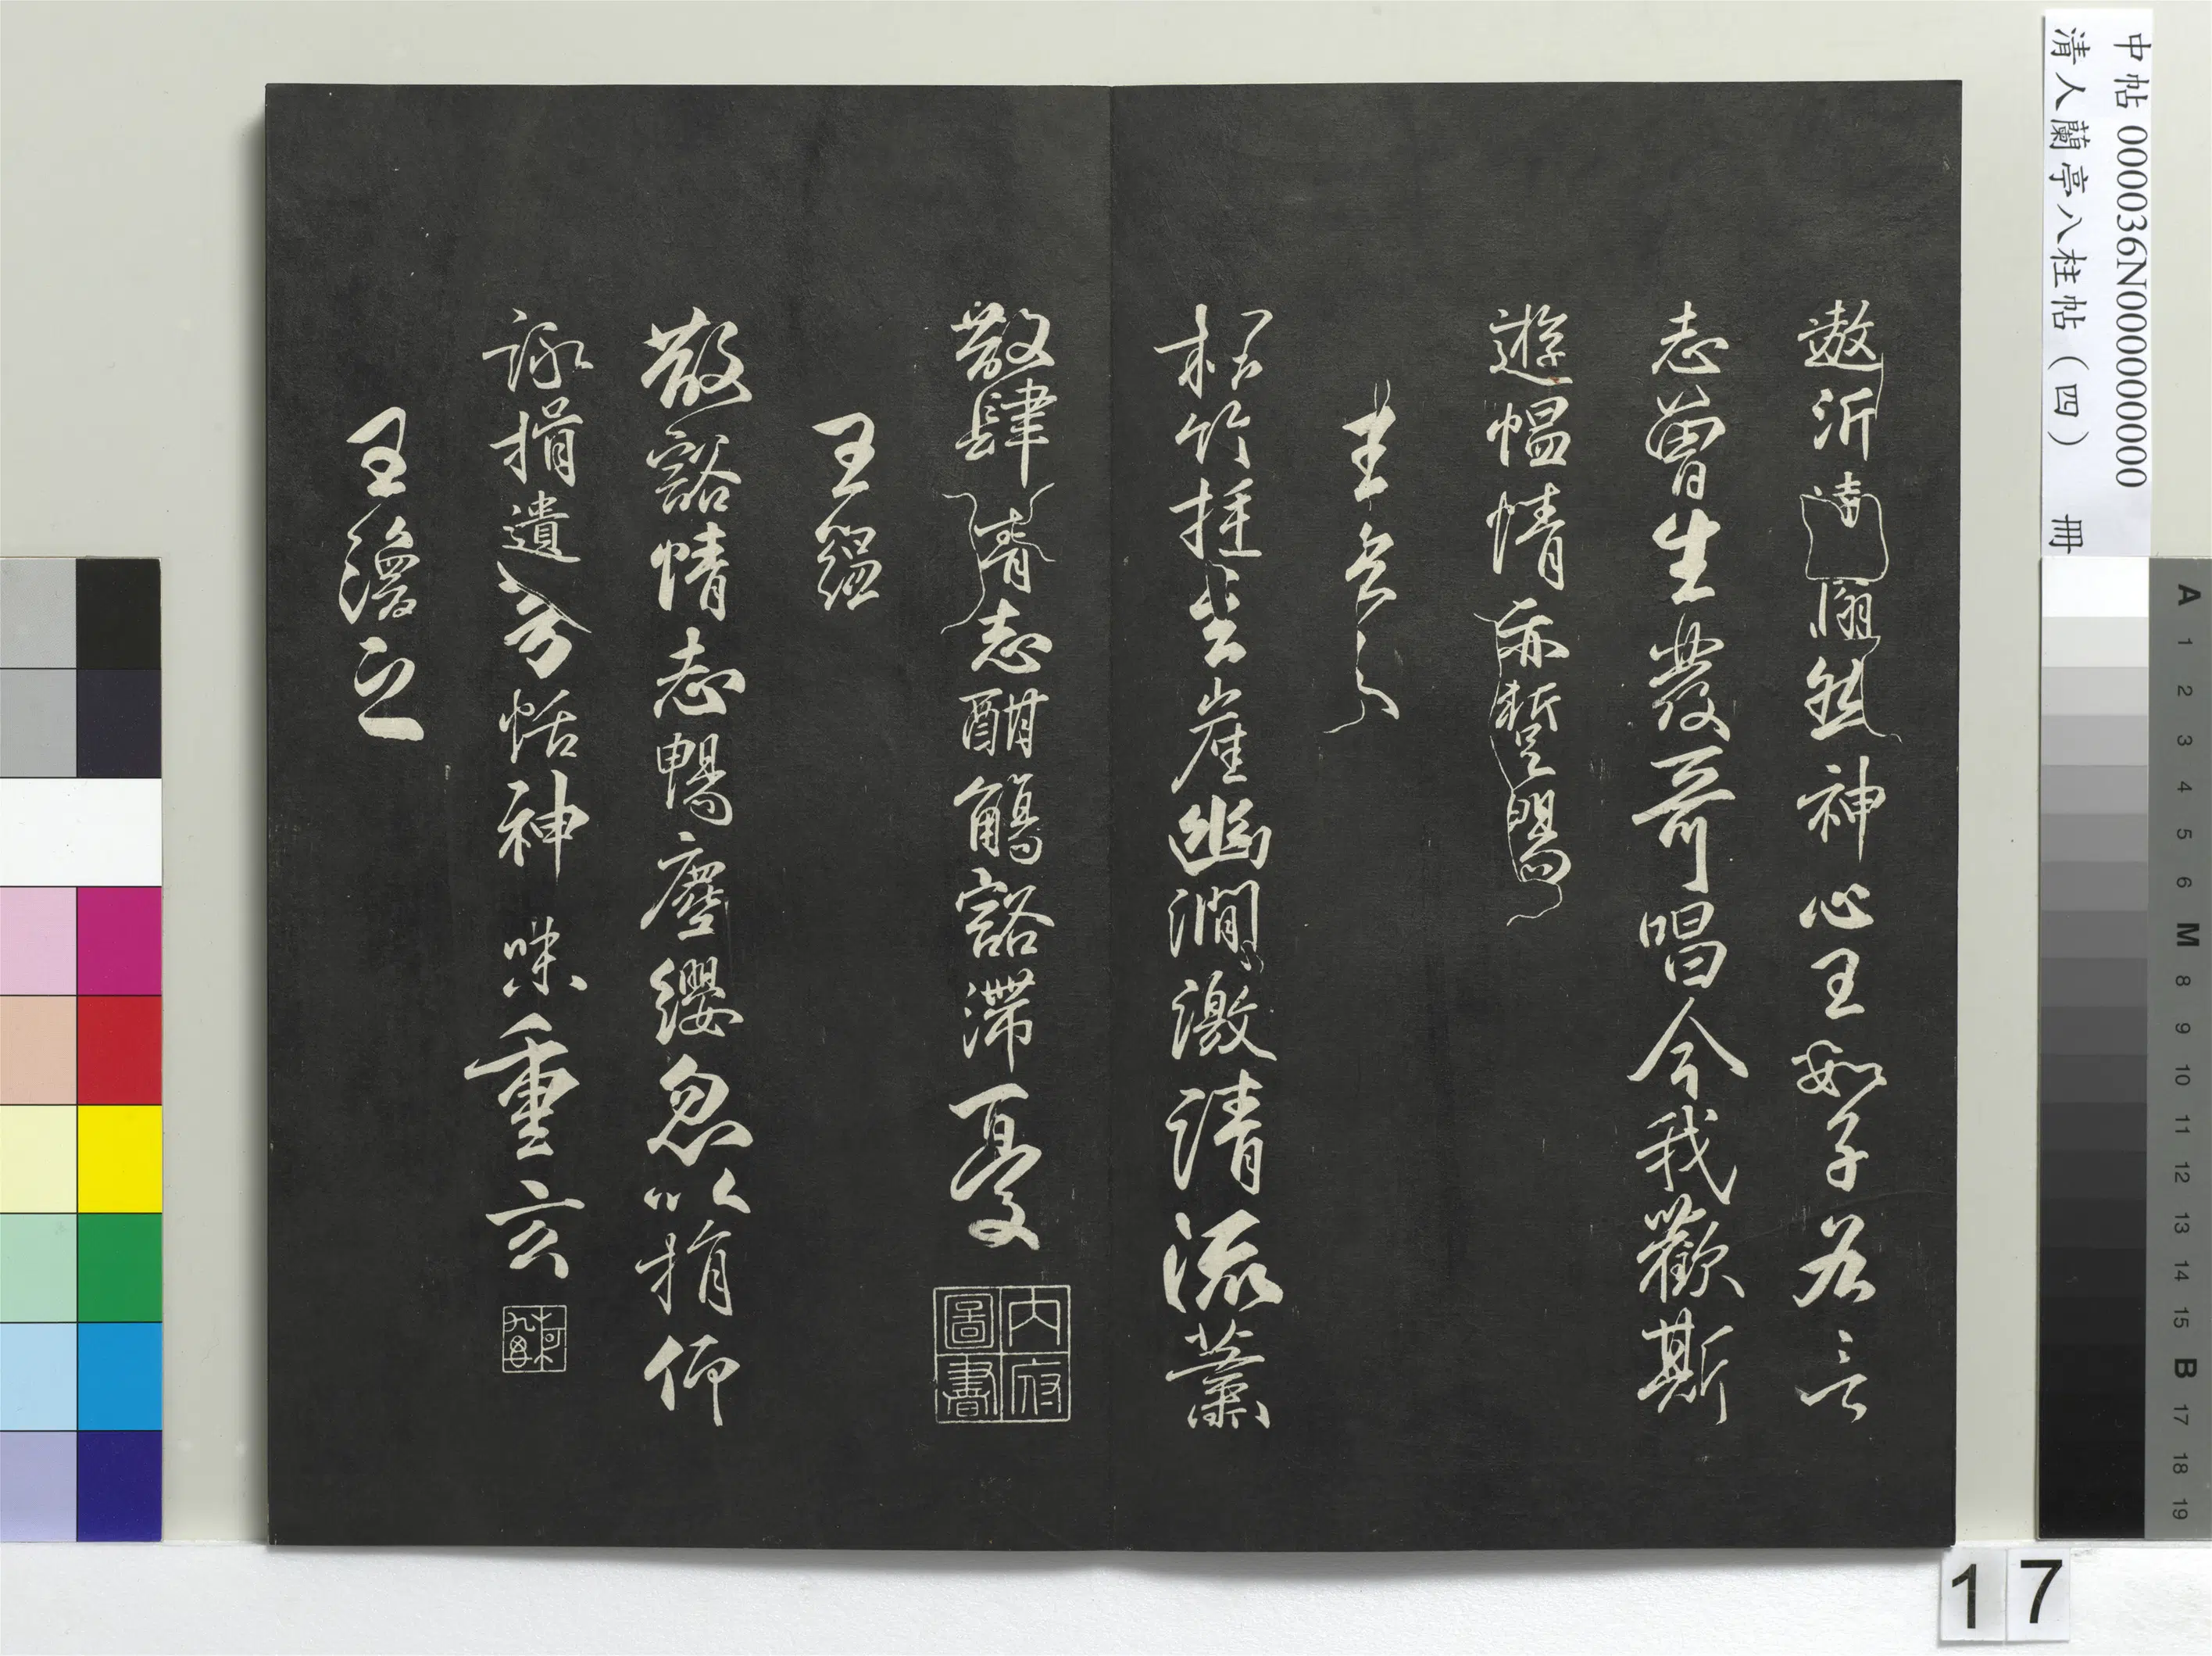 中帖 000036N000000000
清人蘭亭八柱帖(四) 冊
遨沂清
翛然神心王數子各言
志曾生發奇唱今我歡斯
遊慍情亦暫暢
王玄之
松竹挺巖崖幽澗激清流蕭
散肆情志酣觴豁滯憂
王蘊之
散豁情志暢塵纓忽以捐仰
詠挹遺芳怡神味重玄
王渙之
內府圖書
A 1 2 3 4 5 6 M 8 9 10 11 12 13 14 15 B 17 18 19
17